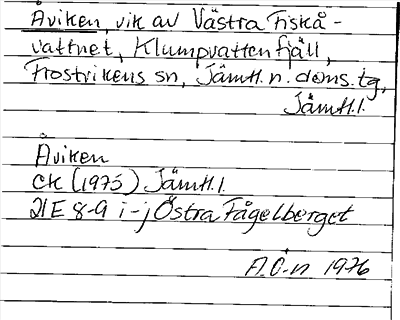 Åviken, vik av Västra Fiskå-
vattnet, Klumpvattenfjäll,
Frostvikens sn, Jämtl. n. doms. tg,
Jämtl. l.
Åviken
CK (1975) Jämtl. l.
21E 8-9 i-j Östra Fågelberget
A.O-n 1976